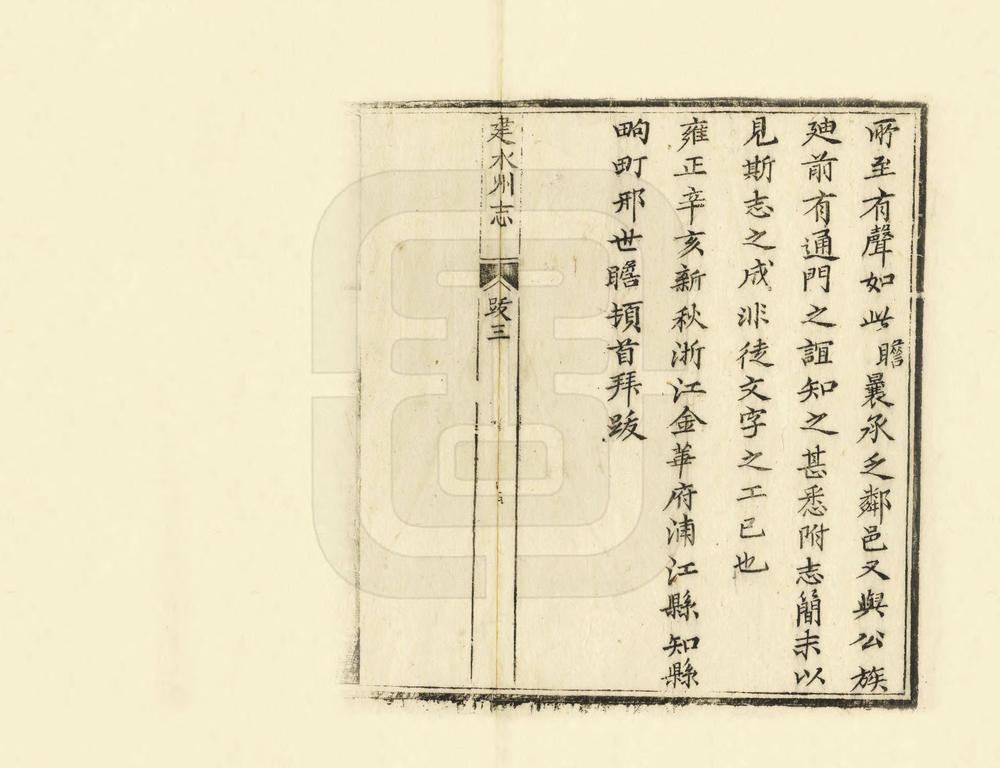 所至有聲如此瞻曩承乏鄰邑又與公族
廸前有通門之誼知之甚悉附志簡末以
見斯志之成非徒文字之工已也
雍正辛亥新秋浙江金華府浦江縣知縣
畇町邢世瞻頓首拜跋
建水州志
跋三